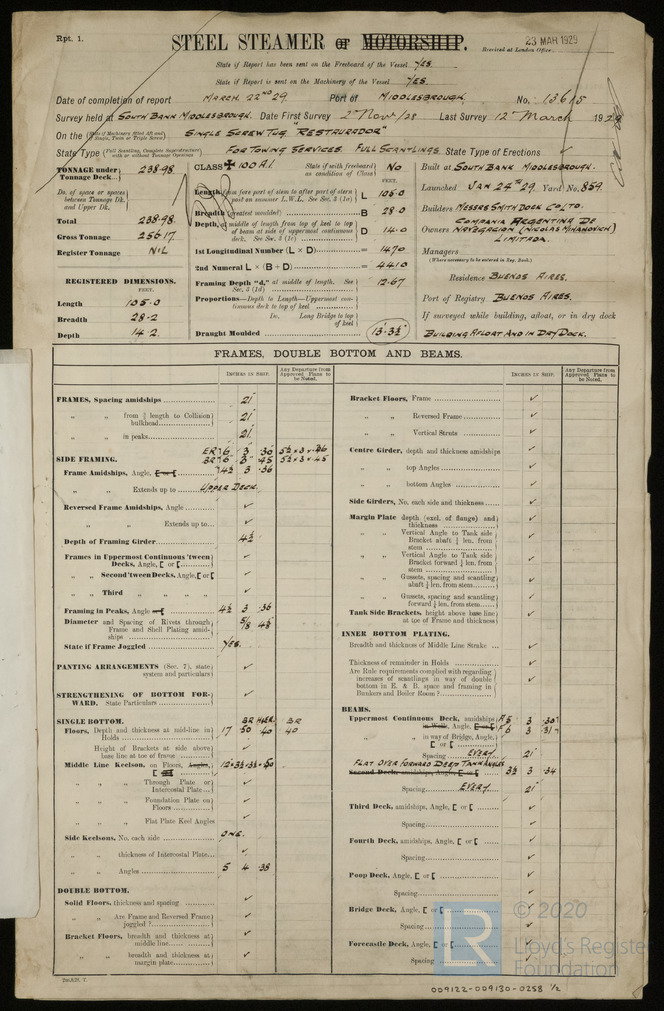 Rpt. 1.
STEEL STEAMER or MOTORSHIP.
23 MAR 1929
Received at London Office.
State if Report has been sent on the Freeboard of the Vessel YES.
State if Report is sent on the Machinery of the Vessel YES.
Date of completion of report MARCH 22ND 29. Port of MIDDLESBROUGH. No. 13615
Survey held at SOUTH BANK MIDDLESBROUGH. Date First Survey 2nd Nov/28 Last Survey 12th March 1929
On the (State if Machinery fitted Aft and if Single, Twin or Triple Screw) SINGLE SCREW TUG "RESTAURADOR"
State Type (Full Scantling, Complete Superstructure with or without Tonnage Openings) FOR TOWING SERVICES. FULL SCANTLINGS. State Type of Erections ✓
TONNAGE under Tonnage Deck... 238.98
Do. of space or spaces between Tonnage Dk. and Upper Dk.
Total 238.98.
Gross Tonnage 256.17
Register Tonnage NIL
REGISTERED DIMENSIONS.
FEET.
Length 105.0
Breadth 28.2
Depth 14.2.
CLASS ✠ 100 A.1. State if (with freeboard) as condition of Class No
FEET.
Length from fore part of stem to after part of stern post on summer L.W.L. See Sec. 3 (1a) L 105.0
Breadth (greatest moulded) B 28.0
Depth, at middle of length from top of keel to top of beam at side of uppermost continuous deck. See Sec. 3 (1c) D 14.0
1st Longitudinal Number (L × D) = 1470
2nd Numeral L × (B + D) = 4410
Framing Depth "d," at middle of length. See Sec. 3 (1d) 12.67
Proportions—Depth to Length—Uppermost continuous deck to top of keel
Do. Long Bridge to top of keel
Draught Moulded 13'-3½"
Built at SOUTH BANK MIDDLESBROUGH.
Launched JAN 24TH 29. Yard No. 859.
Builders MESSRS SMITH DOCK CO LTD.
Owners COMPANIA ARGENTINA DE NAVEGACION (NICOLAS MIHANOVICH) LIMITADA.
Managers
(Where necessary to be entered in Reg. Book.)
Residence BUENOS AIRES.
Port of Registry BUENOS AIRES.
If surveyed while building, afloat, or in dry dock
BUILDING AFLOAT AND IN DRY DOCK.
FRAMES, DOUBLE BOTTOM AND BEAMS.
INCHES IN SHIP.
Any Departure from Approved Plans to be Noted.
FRAMES, Spacing amidships 21"
" " from ⅗ length to Collision bulkhead 21"
" " in peaks 21"
SIDE FRAMING.
ER 6 3 .36 5½ × 3 × .46
BR 6 3 .45 5½ × 3 × .45
Frame Amidships, Angle, [ or [ 4½ 3 .36
" " Extends up to UPPER DECK.
Reversed Frame Amidships, Angle ✓
" " Extends up to ✓
Depth of Framing Girder 4½
Frames in Uppermost Continuous 'tween Decks, Angle, [ or [ ✓
" " Second 'tween Decks, Angle, [ or [ ✓
" " Third " " " " ✓
Framing in Peaks, Angle or [ 4½ 3 .36
Diameter and Spacing of Rivets through Frame and Shell Plating amidships 5/8 4⅜
State if Frame Joggled YES.
PANTING ARRANGEMENTS (Sec. 7), state system and particulars ✓
STRENGTHENING OF BOTTOM FORWARD. State Particulars ✓
SINGLE BOTTOM.
BR H&ER. BR
Floors, Depth and thickness at mid-line in Holds 17 .50 .40 .40
Height of Brackets at side above base line at toe of frame ✓
Middle Line Keelson, on Floors, Angles, [ 12 × 3½ × 3½ × .50
" " " Through Plate or Intercostal Plate ✓
" " " Foundation Plate on Floors ✓
" " " Flat Plate Keel Angles ✓
Side Keelsons, No. each side ONE.
" " thickness of Intercostal Plate ✓
" " Angles 5 4 .38
DOUBLE BOTTOM.
Solid Floors, thickness and spacing ✓
" " Are Frame and Reversed Frame joggled? ✓
Bracket Floors, breadth and thickness at middle line ✓
" " breadth and thickness at margin plate ✓
INCHES IN SHIP.
Any Departure from Approved Plans to be Noted.
Bracket Floors, Frame ✓
" " Reversed Frame ✓
" " Vertical Struts ✓
Centre Girder, depth and thickness amidships ✓
" " top Angles ✓
" " bottom Angles ✓
Side Girders, No. each side and thickness ✓
Margin Plate depth (excl. of flange) and thickness ✓
" " Vertical Angle to Tank side Bracket abaft ¼ len. from stem ✓
" " Vertical Angle to Tank side Bracket forward ¼ len. from stem ✓
" " Gussets, spacing and scantling abaft ¼ len. from stem ✓
" " Gussets, spacing and scantling forward ¼ len. from stem ✓
Tank Side Brackets, height above base line at toe of Frame and thickness ✓
INNER BOTTOM PLATING.
Breadth and thickness of Middle Line Strake ✓
Thickness of remainder in Holds ✓
Are Rule requirements complied with regarding increases of scantlings in way of double bottom in E. & B. space and framing in Bunkers and Boiler Room? ✓
BEAMS.
Uppermost Continuous Deck, amidships 5 3 .30
in Wells, Angle, [ or [ 6 3 .31
" " in way of Bridge, Angle, [ or [ ✓
Spacing EVERY 21"
FLAT OVER FORWARD DEEP TANK ANGLES
Second Deck, amidships, Angle, [ or [ 3½ 3 .34
Spacing EVERY 21"
Third Deck, amidships, Angle, [ or [ ✓
Spacing ✓
Fourth Deck, amidships, Angle, [ or [ ✓
Spacing ✓
Poop Deck, Angle, [ or [ ✓
Spacing ✓
Bridge Deck, Angle, [ or [
Spacing
Forecastle Deck, Angle, [ or [
Spacing
© 2020
LR
Lloyd's Register
Foundation
009122-009130-0258 ½